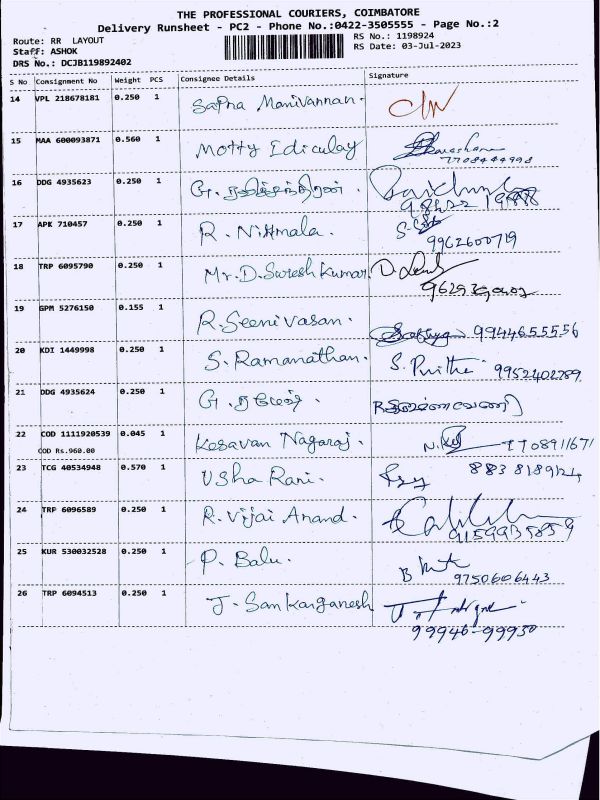 THE PROFESSIONAL COURIERS, COIMBATORE
Delivery Runsheet - PC2 - Phone No.:0422-3505555 - Page No.:2
Route: RR LAYOUT
RS No.: 1198924
Staff: ASHOK
RS Date: 03-Jul-2023
DRS No.: DCJB119892402
S No Consignment No Weight PCS Consignee Details Signature
14 VPL 218678181 0.250 1 Sapna Manivannan.
15 MAA 600093871 0.560 1 Motty Idiculay
7708444998
16 DDG 4935623 0.250 1 G. ரவிச்சந்திரன்.
17 APK 710457 0.250 1 R. Nirmala.
9962600719
18 TRP 6095790 0.250 1 Mr. D. Suresh Kumar
19 GPM 5276150 0.155 1 R. Seenivasan. 9944655556
20 KDI 1449998 0.250 1 S. Ramanathan. S. Prithe 9952402789
21 DDG 4935624 0.250 1 G. ரமேஷ்.
22 COD 1111920539 0.045 1 Kesavan Nagaraj. 770891671
COD Rs.960.00
23 TCG 40534948 0.570 1 Usha Rani.
24 TRP 6096589 0.250 1 R. Vijai Anand.
9159935859
25 KUR 530032528 0.250 1 P. Balu.
9750606443
26 TRP 6094513 0.250 1 J. Sankarganesh
99946-99930